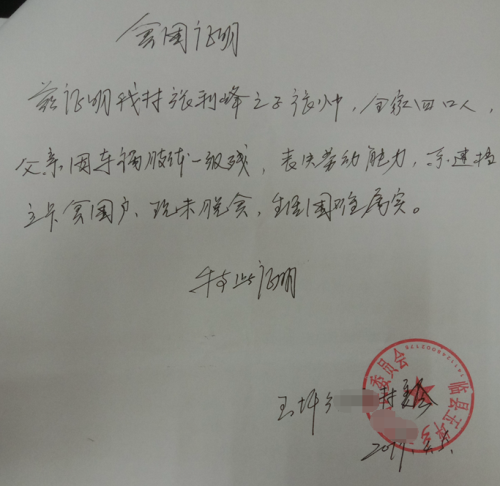 贫困证明
兹证明我村张利峰之子张帅,全家四口人,
父亲因车祸肢体一级残,丧失劳动能力,系建档
立卡贫困户、现未脱贫,生活困难属实。
特此证明
玉坪乡 村委会
委员会 临县玉坪乡